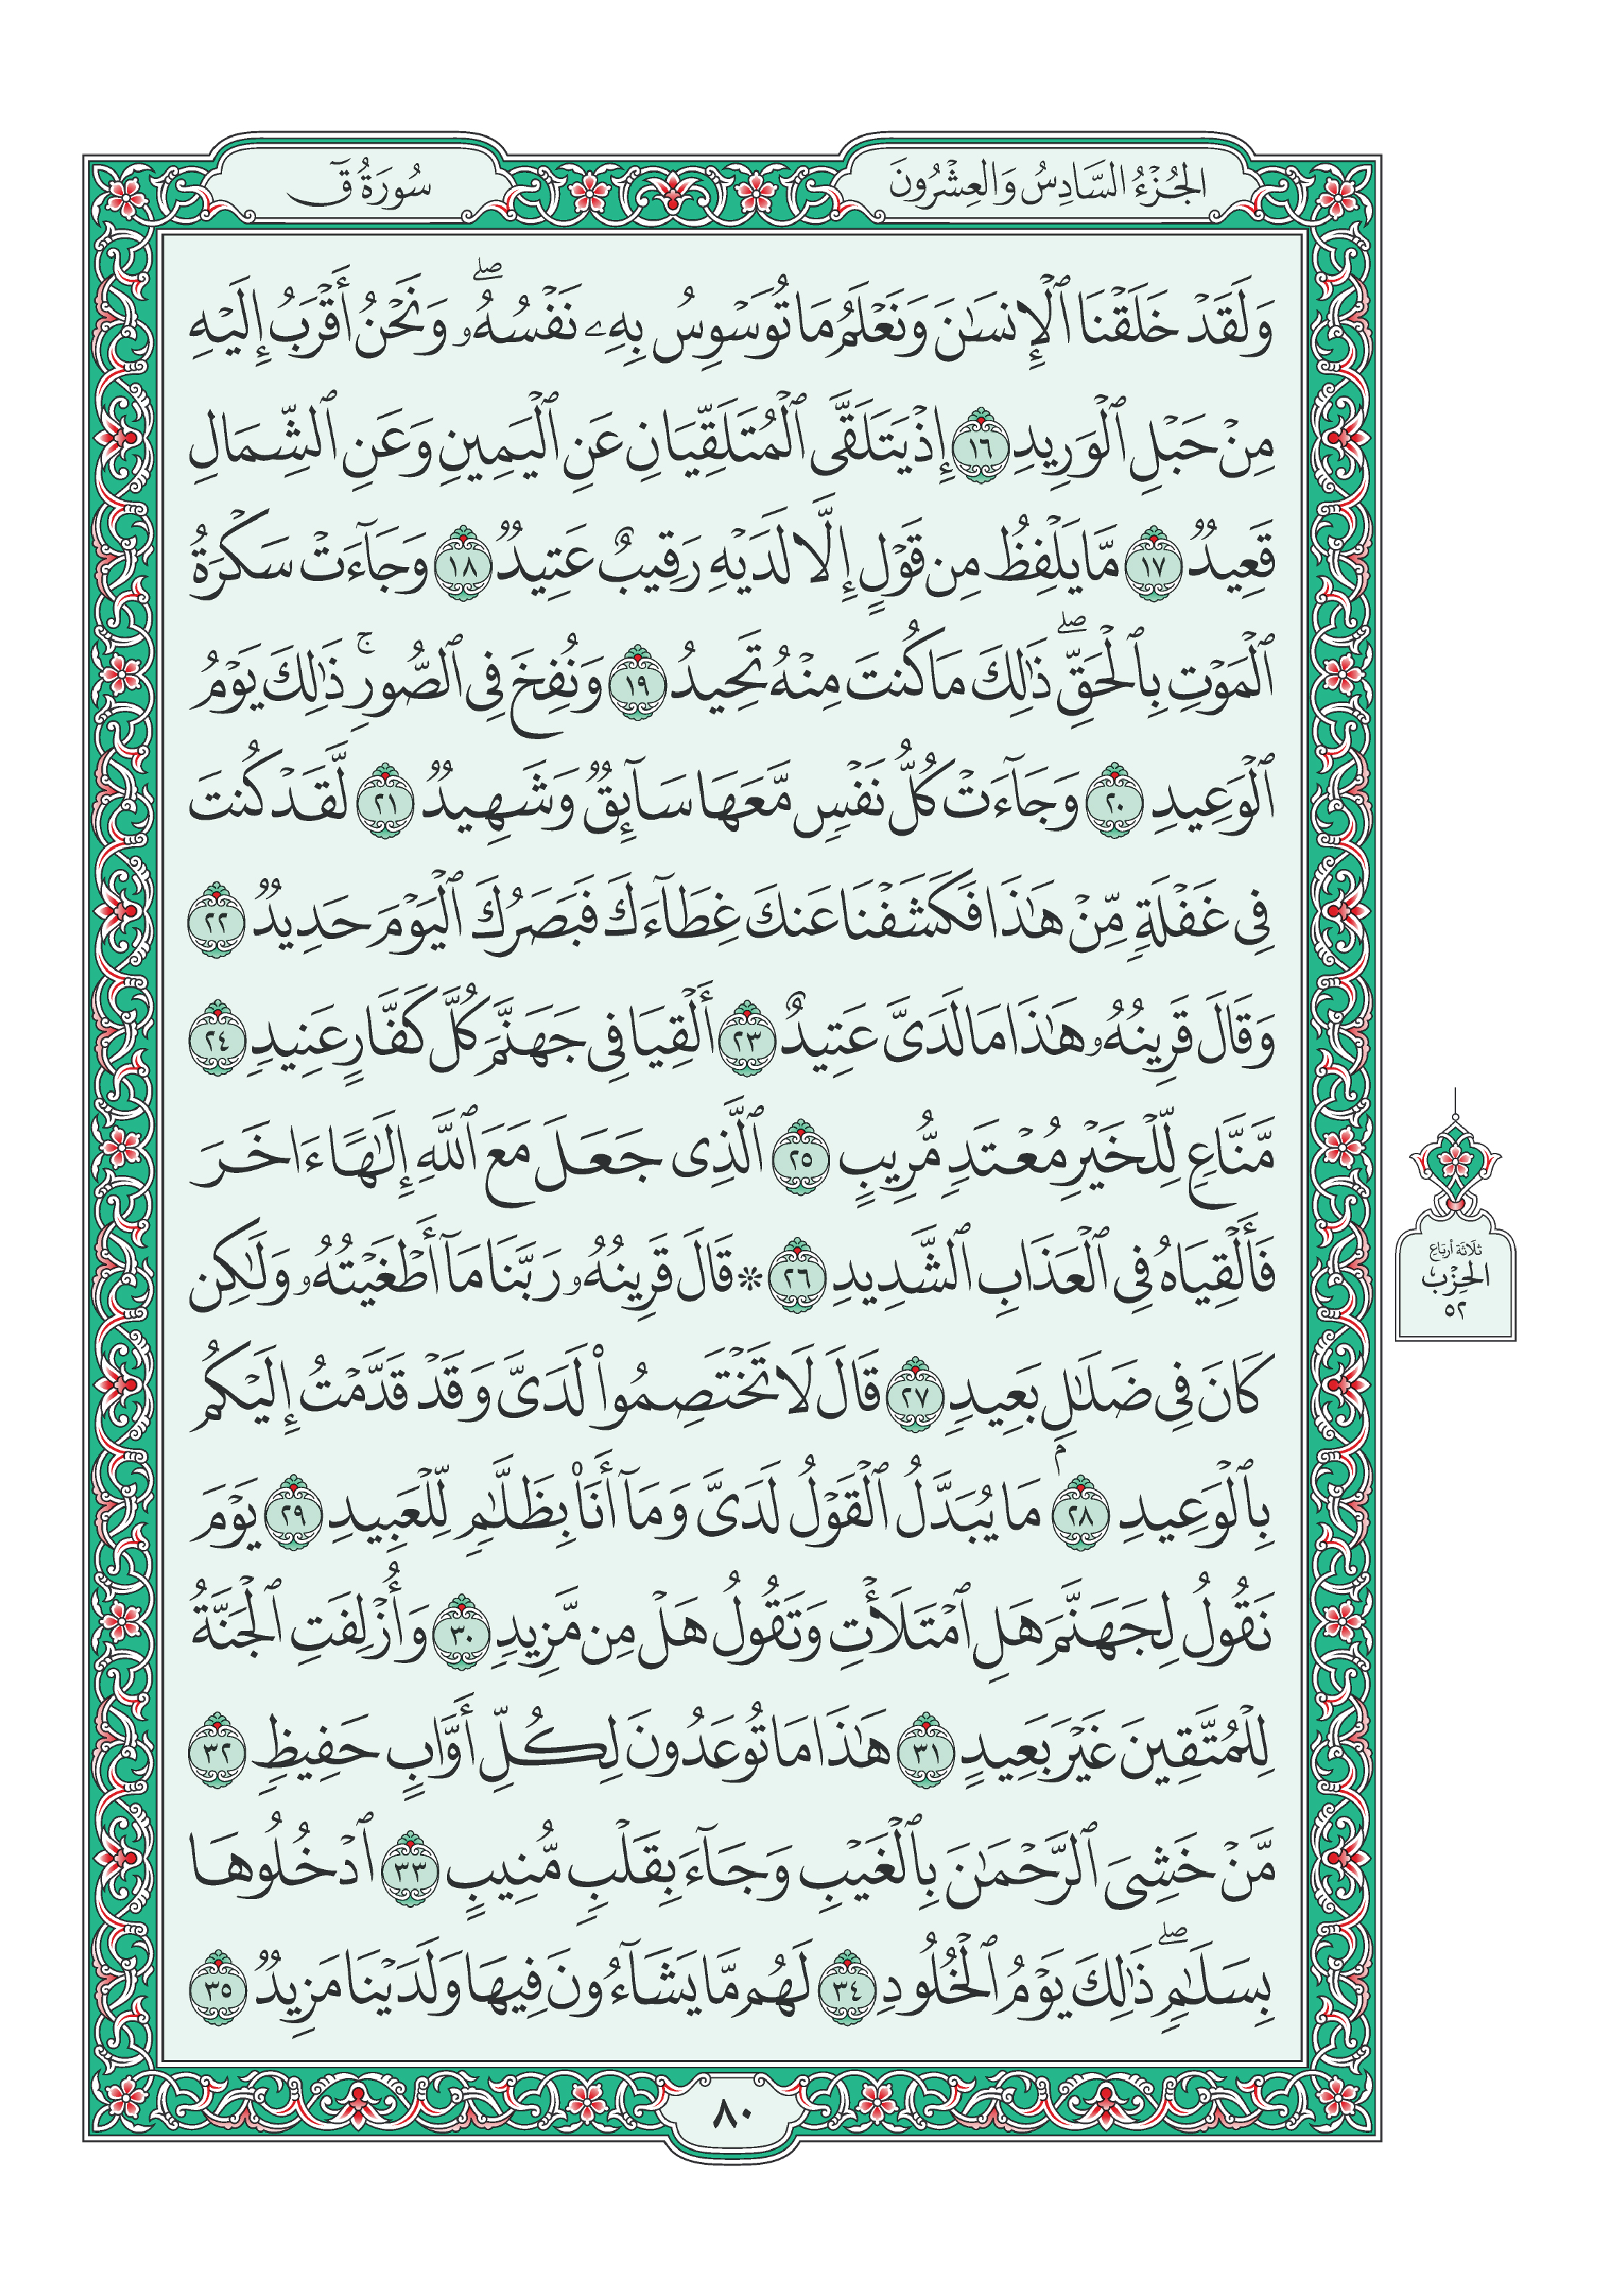 الجُزْءُ السَّادِسُ وَالعِشْرُونَ
سُورَةُ قٓ
وَلَقَدۡ خَلَقۡنَا ٱلۡإِنسَٰنَ وَنَعۡلَمُ مَا تُوَسۡوِسُ بِهِۦ نَفۡسُهُۥۖ وَنَحۡنُ أَقۡرَبُ إِلَيۡهِ
مِنۡ حَبۡلِ ٱلۡوَرِيدِ ١٦ إِذۡ يَتَلَقَّى ٱلۡمُتَلَقِّيَانِ عَنِ ٱلۡيَمِينِ وَعَنِ ٱلشِّمَالِ
قَعِيدٞ ١٧ مَّا يَلۡفِظُ مِن قَوۡلٍ إِلَّا لَدَيۡهِ رَقِيبٌ عَتِيدٞ ١٨ وَجَآءَتۡ سَكۡرَةُ
ٱلۡمَوۡتِ بِٱلۡحَقِّۖ ذَٰلِكَ مَا كُنتَ مِنۡهُ تَحِيدُ ١٩ وَنُفِخَ فِي ٱلصُّورِۚ ذَٰلِكَ يَوۡمُ
ٱلۡوَعِيدِ ٢٠ وَجَآءَتۡ كُلُّ نَفۡسٖ مَّعَهَا سَآئِقٞ وَشَهِيدٞ ٢١ لَّقَدۡ كُنتَ
فِي غَفۡلَةٖ مِّنۡ هَٰذَا فَكَشَفۡنَا عَنكَ غِطَآءَكَ فَبَصَرُكَ ٱلۡيَوۡمَ حَدِيدٞ ٢٢
وَقَالَ قَرِينُهُۥ هَٰذَا مَا لَدَيَّ عَتِيدٌ ٢٣ أَلۡقِيَا فِي جَهَنَّمَ كُلَّ كَفَّارٍ عَنِيدٖ ٢٤
مَّنَّاعٖ لِّلۡخَيۡرِ مُعۡتَدٖ مُّرِيبٍ ٢٥ ٱلَّذِي جَعَلَ مَعَ ٱللَّهِ إِلَٰهًا ءَاخَرَ
فَأَلۡقِيَاهُ فِي ٱلۡعَذَابِ ٱلشَّدِيدِ ٢٦ ۞ قَالَ قَرِينُهُۥ رَبَّنَا مَآ أَطۡغَيۡتُهُۥ وَلَٰكِن
كَانَ فِي ضَلَٰلِۭ بَعِيدٖ ٢٧ قَالَ لَا تَخۡتَصِمُواْ لَدَيَّ وَقَدۡ قَدَّمۡتُ إِلَيۡكُم
بِٱلۡوَعِيدِ ٢٨ مَا يُبَدَّلُ ٱلۡقَوۡلُ لَدَيَّ وَمَآ أَنَا۠ بِظَلَّٰمٖ لِّلۡعَبِيدِ ٢٩ يَوۡمَ
نَقُولُ لِجَهَنَّمَ هَلِ ٱمۡتَلَأۡتِ وَتَقُولُ هَلۡ مِن مَّزِيدٖ ٣٠ وَأُزۡلِفَتِ ٱلۡجَنَّةُ
لِلۡمُتَّقِينَ غَيۡرَ بَعِيدٍ ٣١ هَٰذَا مَا تُوعَدُونَ لِكُلِّ أَوَّابٍ حَفِيظٖ ٣٢
مَّنۡ خَشِيَ ٱلرَّحۡمَٰنَ بِٱلۡغَيۡبِ وَجَآءَ بِقَلۡبٖ مُّنِيبٍ ٣٣ ٱدۡخُلُوهَا
بِسَلَٰمٖۖ ذَٰلِكَ يَوۡمُ ٱلۡخُلُودِ ٣٤ لَهُم مَّا يَشَآءُونَ فِيهَا وَلَدَيۡنَا مَزِيدٞ ٣٥
ثلَاثَة أربَاع
الحِزْب
٥٢
٨٠